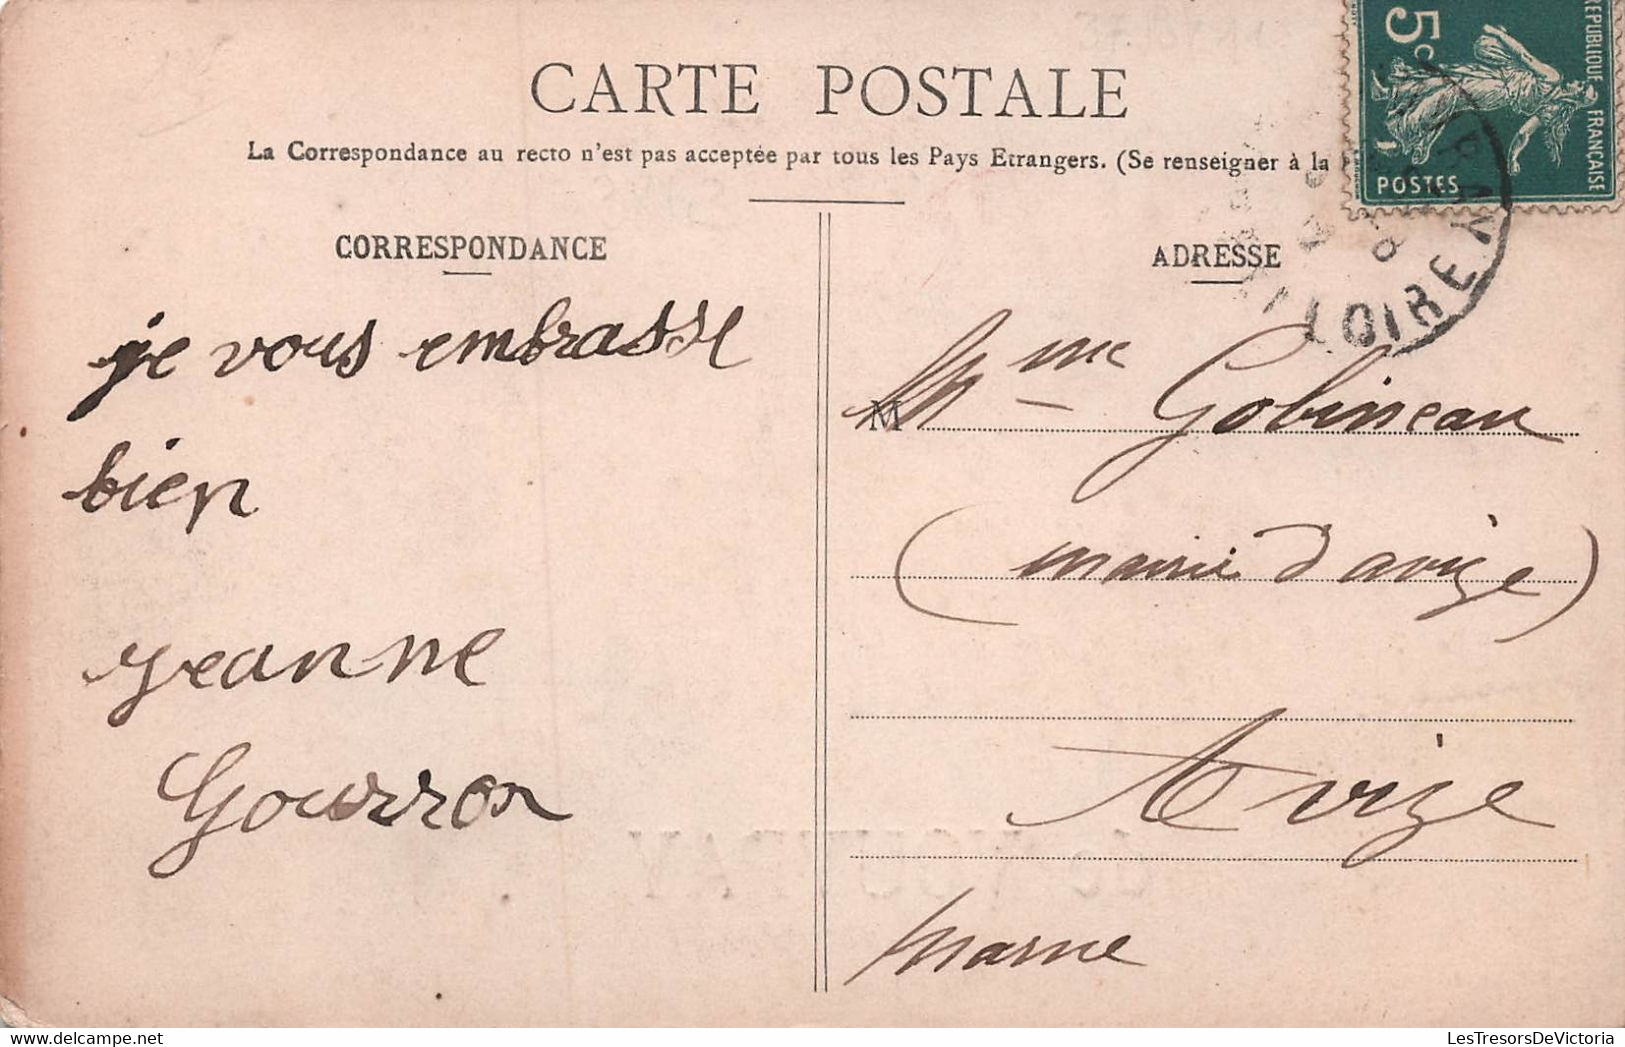 CARTE POSTALE
La Correspondance au recto n'est pas acceptée par tous les Pays Etrangers. (Se renseigner à la
5c
REPUBLIQUE FRANÇAISE
POSTES
LOIRE
CORRESPONDANCE
je vous embrasse
bien
Jeanne
Gourron
ADRESSE
M
Mme Gobineau
(mairie d'avize)
Avize
marne
LesTresorsDeVictoria